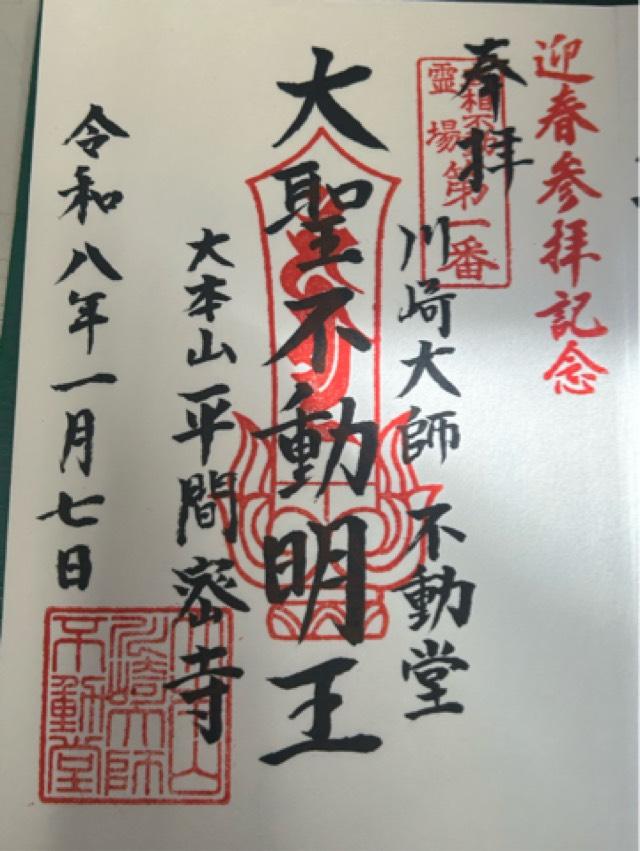 迎春参拝記念
奉拝
霊場第一番
川崎大師 不動堂
大聖不動明王
大本山平間密寺
令和八年一月七日
川崎大師
不動堂